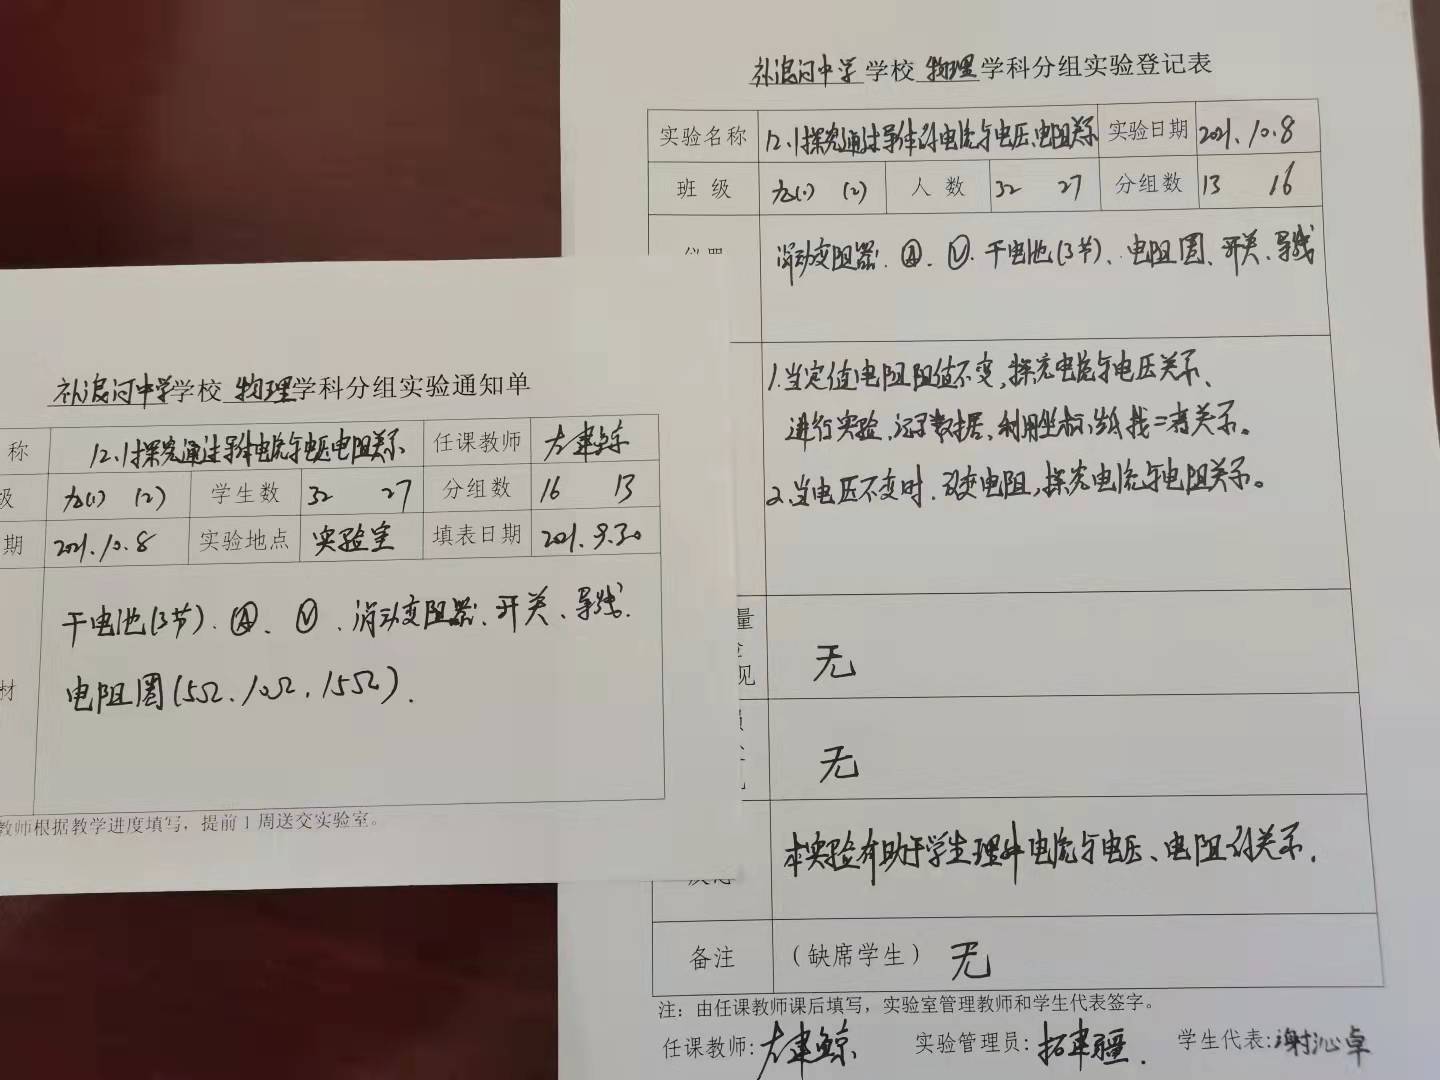 补浪河中学学校 物理学科分组实验登记表
实验名称 12.1探究通过导体的电流与电压、电阻关系 实验日期 2021.10.8
班 级 九(1) (2) 人 数 32 27 分组数 13 16
滑动变阻器、Ⓐ、Ⓥ、干电池(3节)、电阻圈、开关、导线
1.当定值电阻阻值不变,探究电流与电压关系、
进行实验,记录数据,利用坐标纸找二者关系。
2.当电压不变时,改变电阻,探究电流与电阻关系。
量
见
无
无
本实验有助于学生理解电流与电压、电阻的关系.
备注 (缺席学生) 无
注：由任课教师课后填写，实验室管理教师和学生代表签字。
任课教师: 建鲸 实验管理员: 拓建疆. 学生代表: 谢沁卓
补浪河中学学校 物理学科分组实验通知单
称 12.1探究通过导体电流与电压电阻关系 任课教师 建鲸
级 九(1) (2) 学生数 32 27 分组数 16 13
期 2021.10.8 实验地点 实验室 填表日期 2021.9.30
材
干电池(3节).Ⓐ、Ⓥ、滑动变阻器、开关、导线.
电阻圈(5Ω、10Ω、15Ω).
教师根据教学进度填写，提前1周送交实验室。